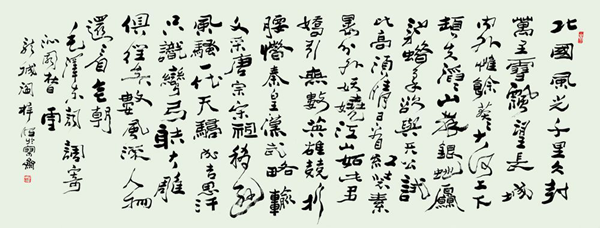 北國風光千里冰封
萬里雪飄望長城
內外惟餘莽莽大河上下
頓失滔滔山舞銀蛇原
馳蠟象欲與天公試
比高須晴日看紅裝素
裹分外妖嬈江山如此多
嬌引無數英雄競折
腰惜秦皇漢武略輸
文采唐宗宋祖稍遜
風騷一代天驕成吉思汗
只識彎弓射大雕
俱往矣數風流人物
還看今朝
毛澤東詞調寄
沁園春雪
龍城